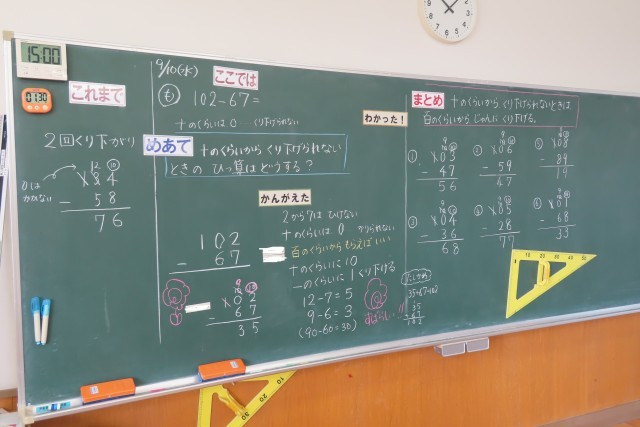 15:00
01:30
これまで
2回くり下がり
0は
かかない
- 58
76
9/10(水)
ここでは
も 102-67=
十のくらいは0…くり下げられない
めあて
十のくらいから くり下げられない
ときの ひっ算は どうする？
102
- 67
102
- 67
35
かんがえた
2から7は ひけない
十のくらいは 0 かりられない
百のくらいからもらえばいい
十のくらいに10
一のくらいに1くり下げる
12-7=5
9-6=3
(90-60=30)
すばらしい!!
わかった！
まとめ
十のくらいから くり下げられないときは、
百のくらいから じゅんに くり下げる。
① 103
- 47
56
② 106
- 59
47
③ 108
- 89
19
104
- 36
68
105
- 28
77
101
- 68
33
たしかめ
35+67=102
35
+67
102
10 20 30 40 50
10
30